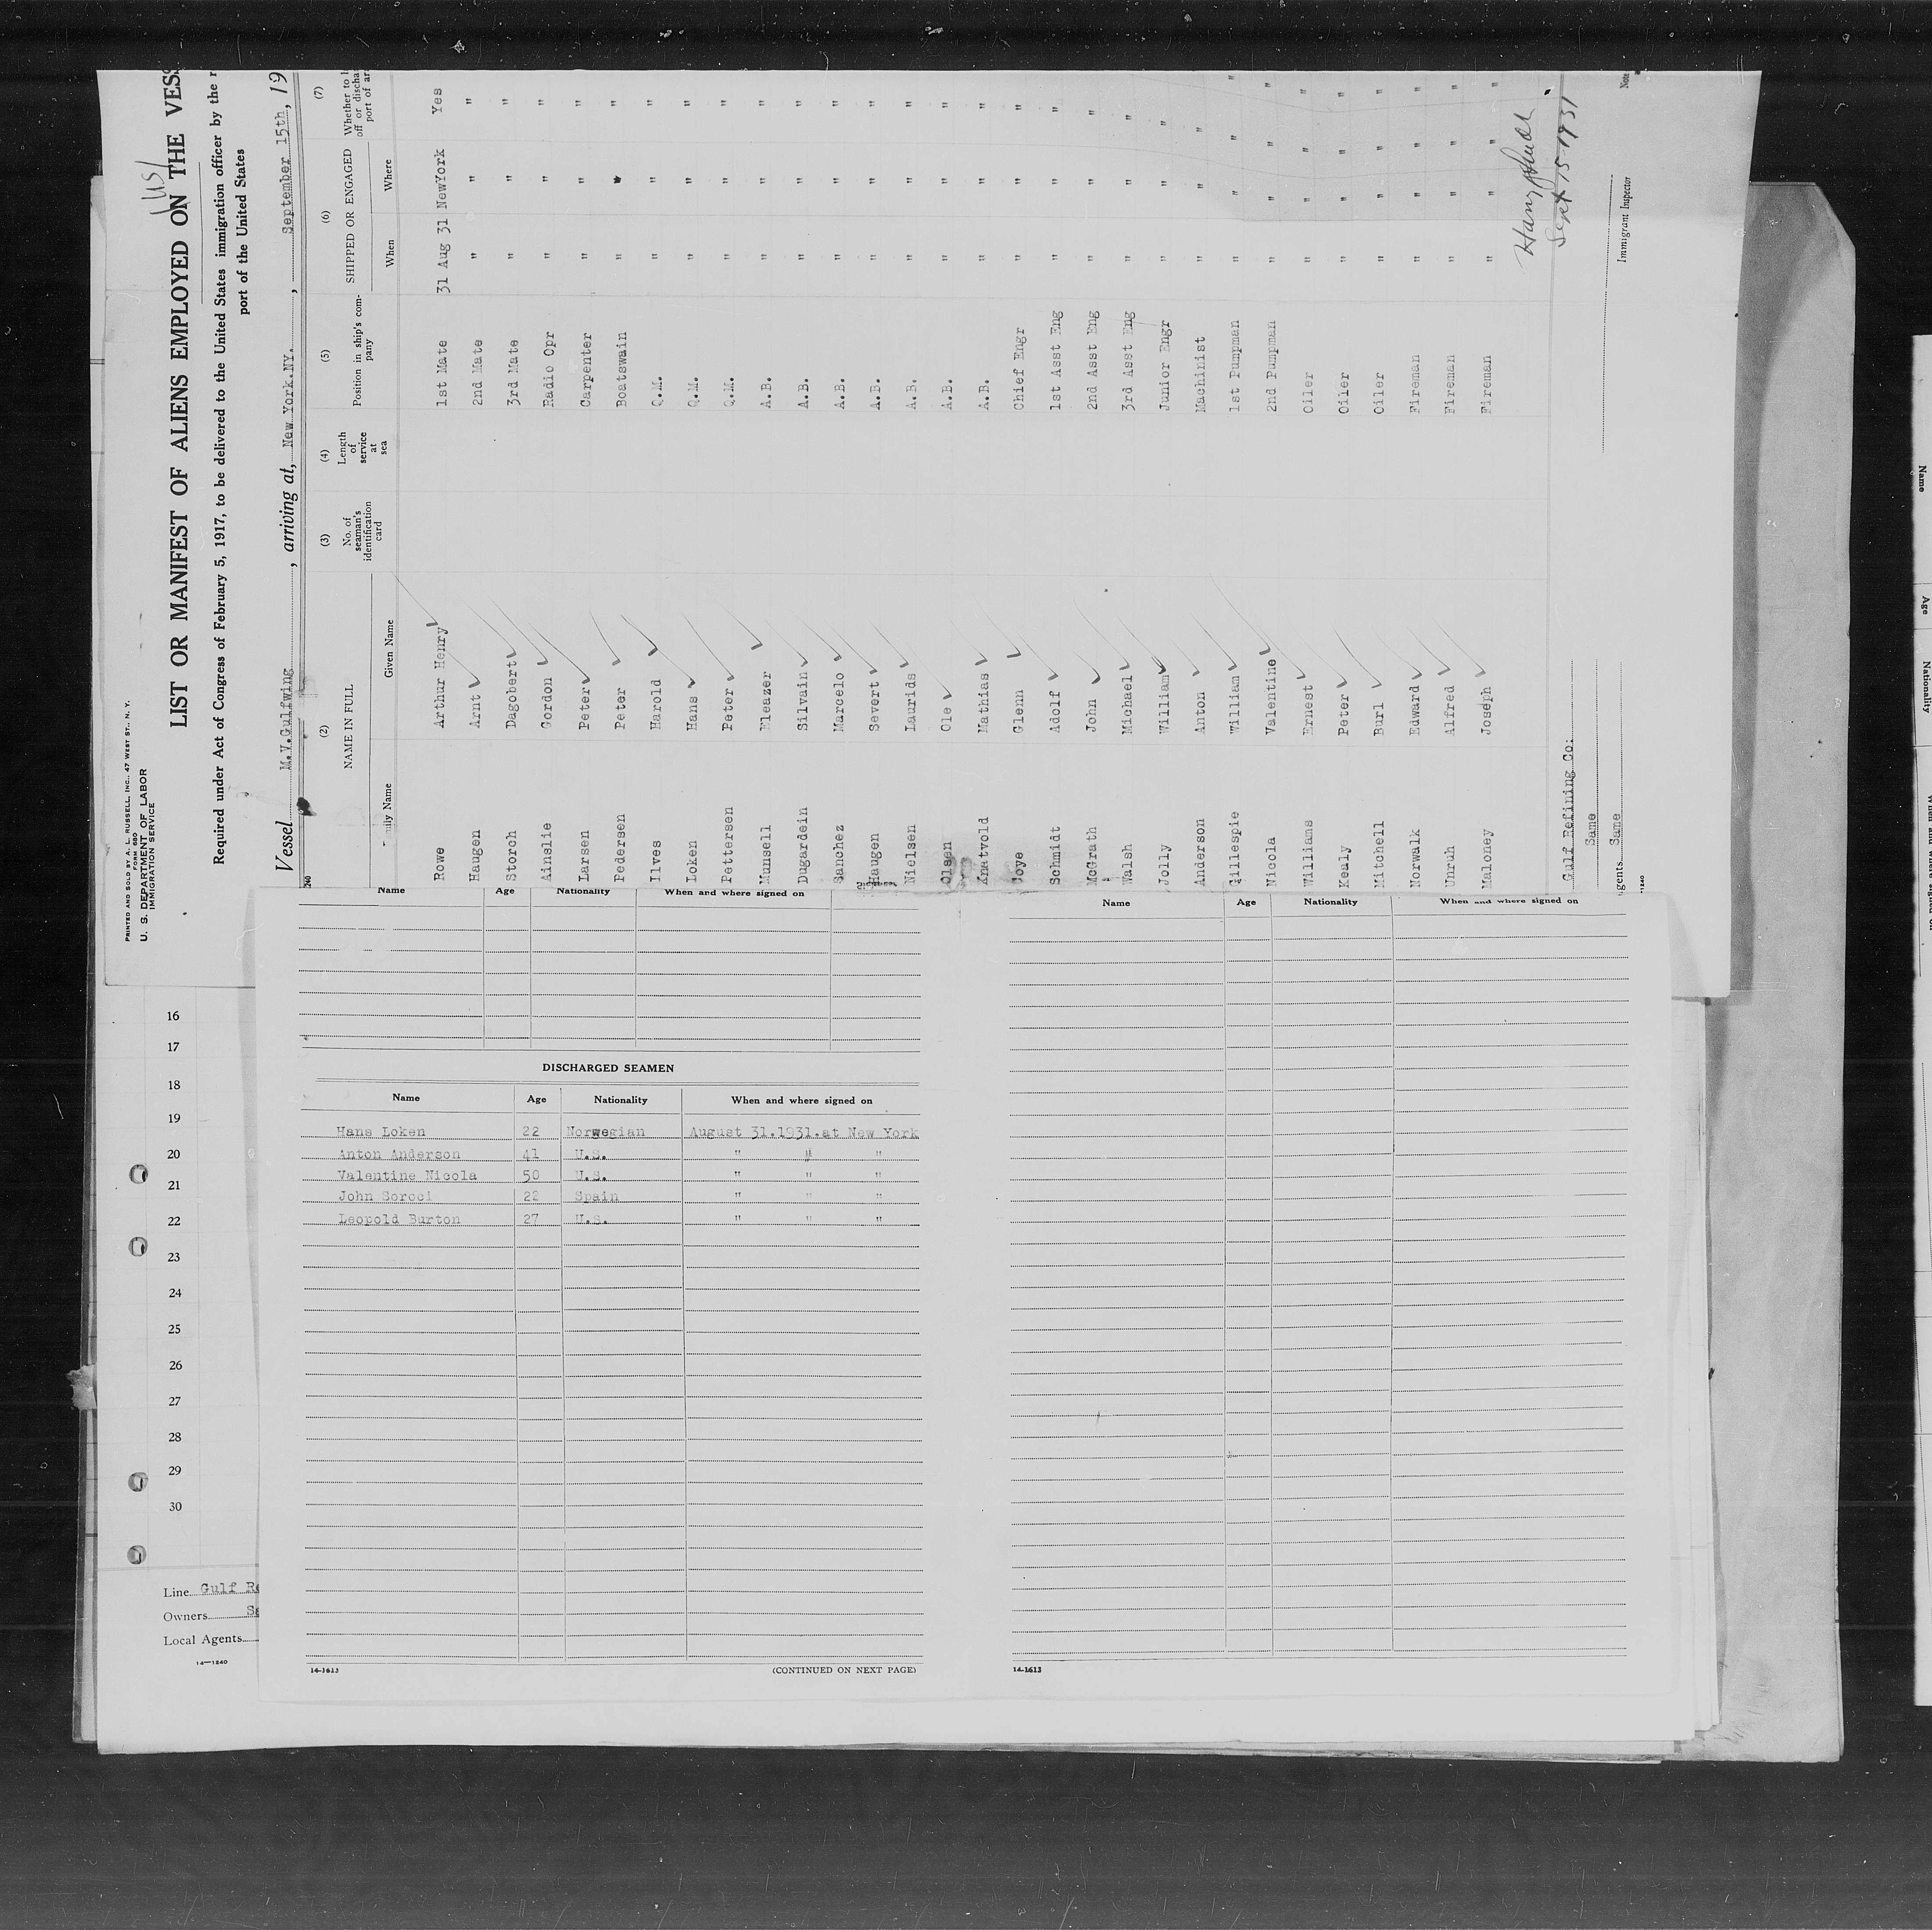 PRINTED AND SOLD BY A. L. RUSSELL, INC., 47 WEST ST., N. Y.
FORM 680
U. S. DEPARTMENT OF LABOR
IMMIGRATION SERVICE
LIST OR MANIFEST OF ALIENS EMPLOYED ON THE VESS
Required under Act of Congress of February 5, 1917, to be delivered to the United States immigration officer by the r
port of the United States
Vessel M.V.Gulfwing, arriving at, New York.NY., September 15th, 19
(2) (3) (4) (5) (6) (7)
NAME IN FULL No. of seaman's identification card Length of service at sea Position in ship's company SHIPPED OR ENGAGED Whether to
off or discha
port of ar
Family Name Given Name When Where
Rowe Arthur Henry 1st Mate 31 Aug 31 NewYork Yes
Haugen Arnt 2nd Mate " " "
Storch Dagobert 3rd Mate " " "
Ainslie Gordon Radio Opr " " "
Larsen Peter Carpenter " " "
Pedersen Peter Boatswain " " "
Ilves Harold Q.M. " " "
Loken Hans Q.M. " " "
Pettersen Peter Q.M. " " "
Munsell Eleazer A.B. " " "
Dugardein Silvain A.B. " " "
Sanchez Marcelo A.B. " " "
Haugen Severt A.B. " " "
Nielsen Laurids A.B. " " "
Olsen Ole A.B. " " "
Knatvold Mathias A.B. " " "
Coye Glenn Chief Engr " " "
Schmidt Adolf 1st Asst Eng " " "
McGrath John 2nd Asst Eng " " "
Walsh Michael 3rd Asst Eng " " "
Jolly William Junior Engr " " "
Anderson Anton Machinist " " "
Gillespie William 1st Pumpman " " "
Nicola Valentine 2nd Pumpman " " "
Williams Ernest Oiler " " "
Keely Peter Oiler " " "
Mitchell Burl Oiler " " "
Norwalk Edward Fireman " " "
Unruh Alfred Fireman " " "
Maloney Joseph Fireman " " "
Sept 15 1931
Gulf Refining Co:
Same
gents Same
Immigrant Inspector
Note
Name Age Nationality When and where signed on
DISCHARGED SEAMEN
Name Age Nationality When and where signed on
Hans Loken 22 Norwegian August 31.1931.at New York
Anton Anderson 41 U.S. " " "
Valentine Nicola 50 U.S. " " "
John Soroci 22 Spain " " "
Leopold Burton 27 U.S. " " "
14-1613 (CONTINUED ON NEXT PAGE)
Name Age Nationality When and where signed on
14-1613
16
17
18
19
20
21
22
23
24
25
26
27
28
29
30
Line Gulf Re
Owners Sa
Local Agents
14—1240
Name
Age
Nationality
When and where signed on